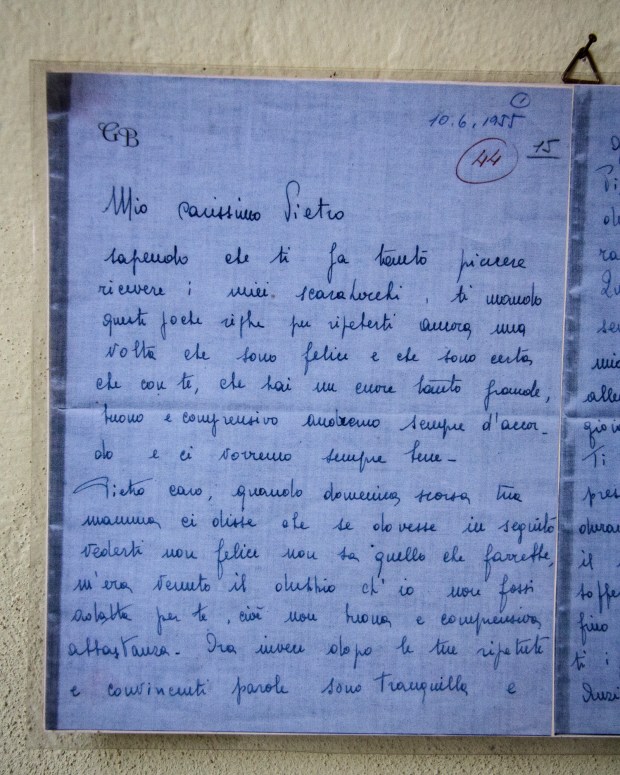 1
10.6,1955
GB
44
15
Mio carissimo Pietro
sapendo che ti fa tanto piacere
ricevere i miei scarabocchi, ti mando
queste poche righe per ripeterti ancora una
volta che sono felice e che sono certa
che con te, che hai un cuore tanto grande,
buono e comprensivo andremo sempre d'accor-
do e ci vorremo sempre bene-
Pietro caro, quando domenica scorsa tua
mamma ci disse che se dovesse in seguito
vederti non felice non sa quello che farebbe,
m'era venuto il dubbio ch'io non fossi
adatta per te, cioè non buona e comprensiva
abbastanza. Ora invece dopo le tue ripetute
e convincenti parole sono tranquilla e